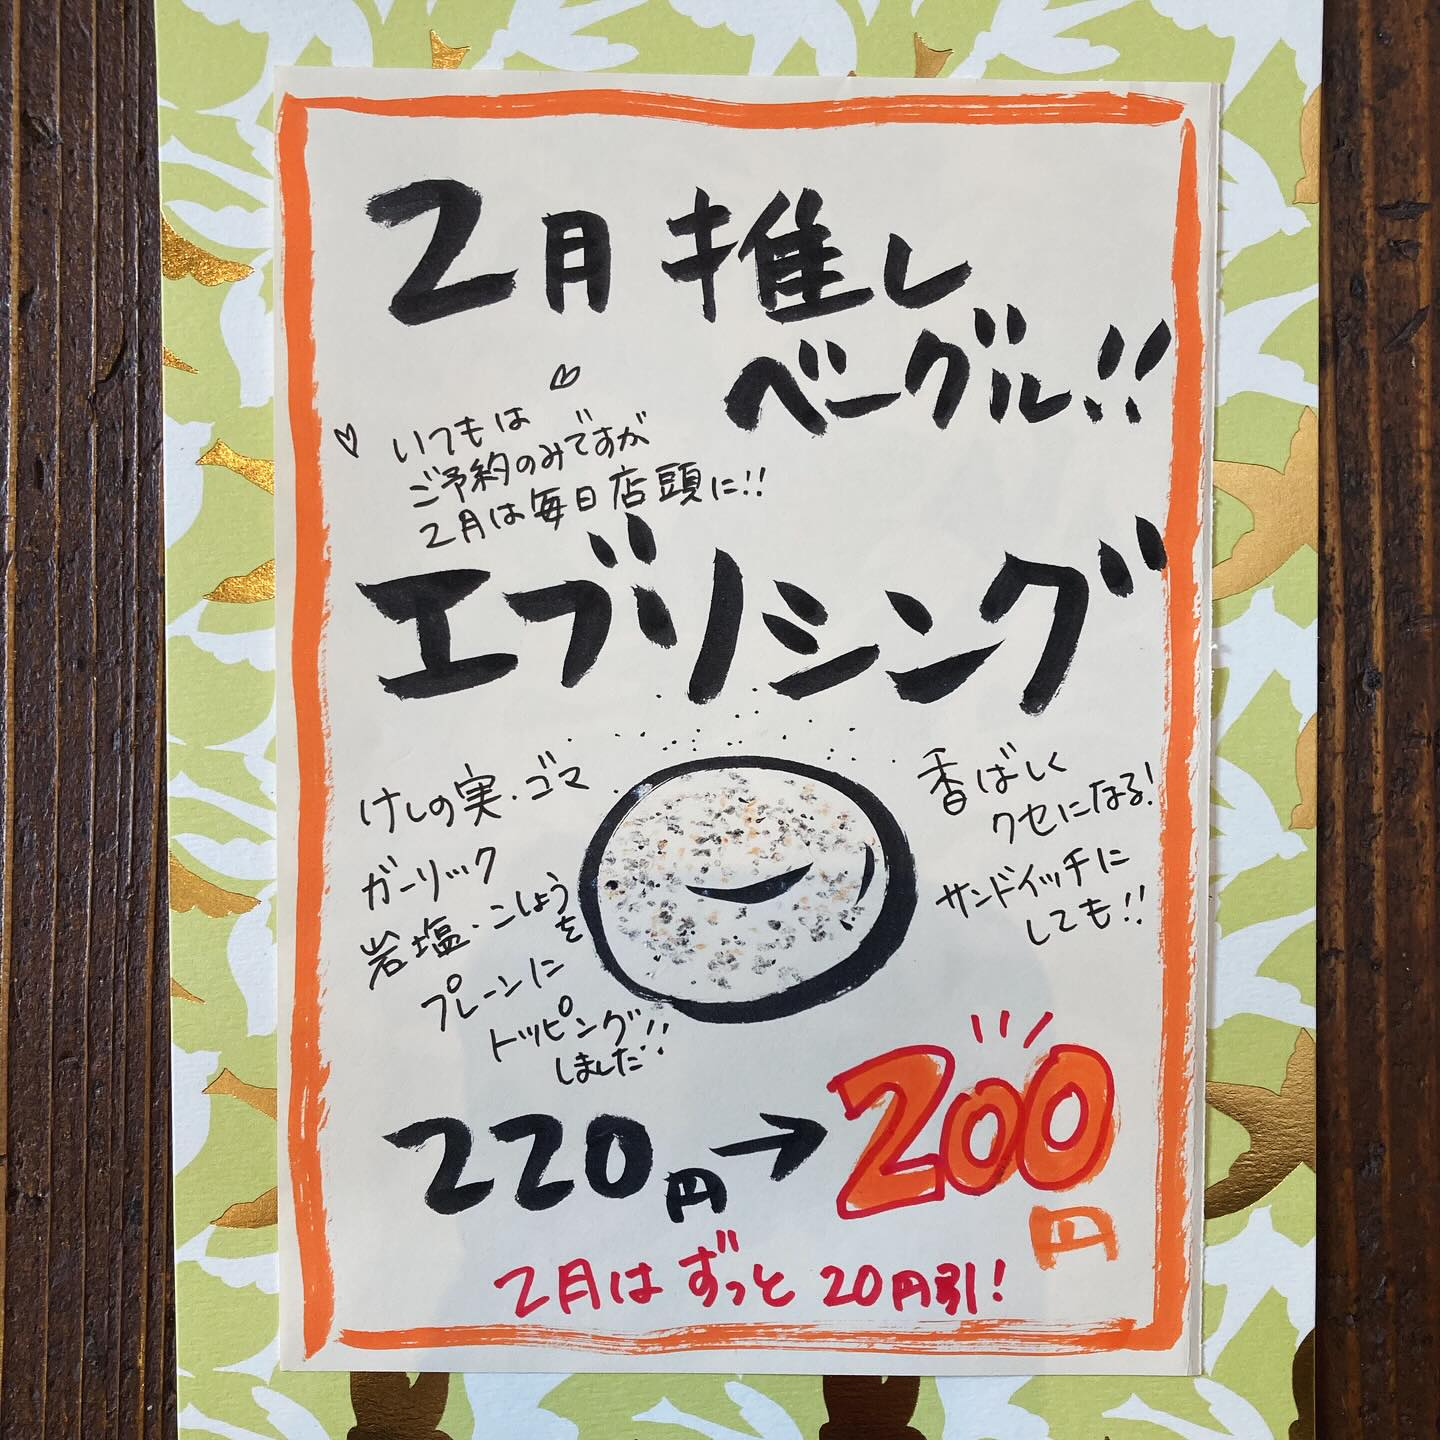 2月 推し
ベーグル!!
いつもは
ご予約のみですが
2月は毎日店頭に!!
エブリシング
けしの実・ゴマ
ガーリック
岩塩・こしょうを
プレーンに
トッピング
しました!!
香ばしく
クセになる!
サンドイッチに
しても!!
220円→200円
2月はずっと20円引!